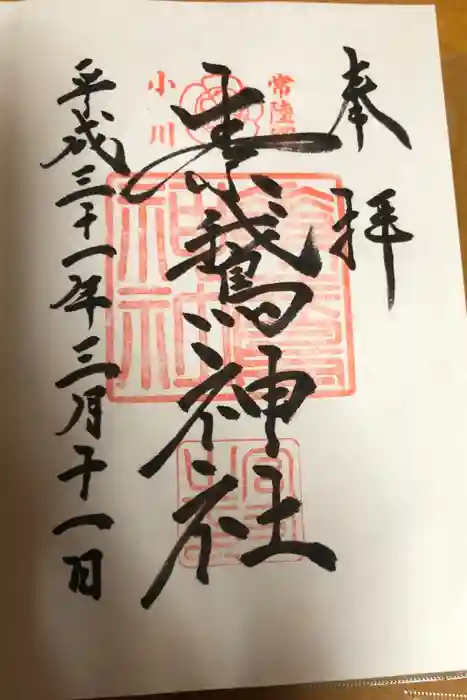 奉拝
常陸國
素鵞神社
小川
平成三十一年三月十一日